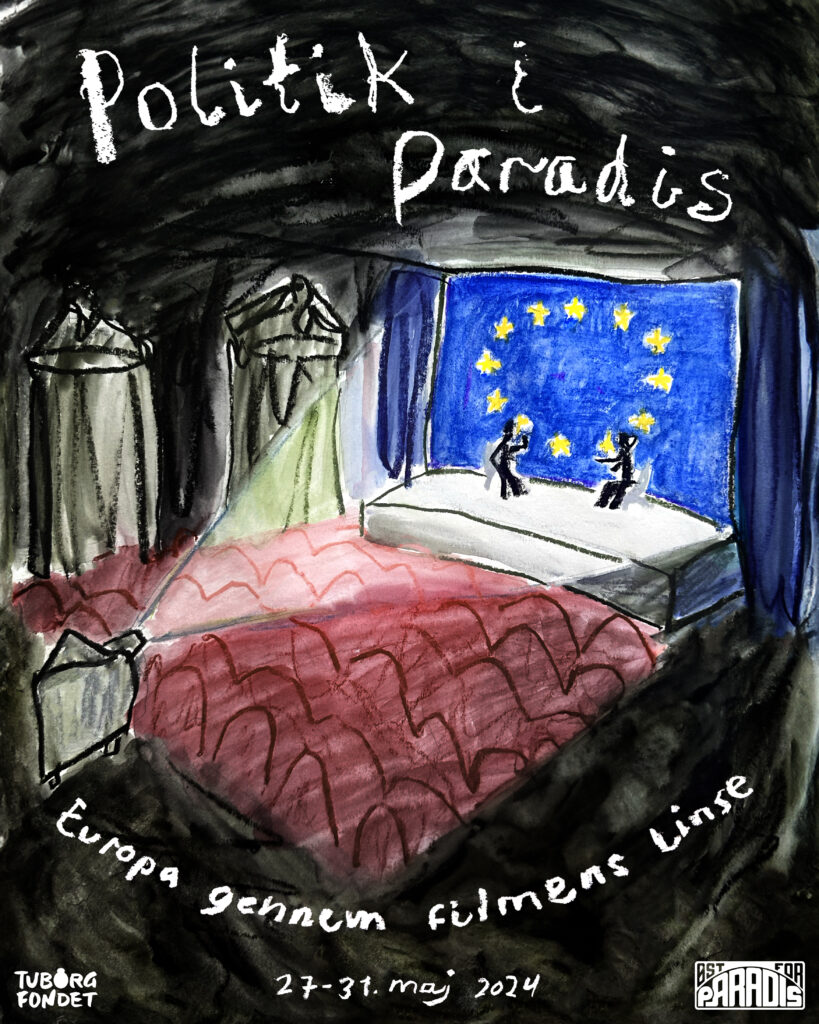 Politik i
Paradis
Europa gennem filmens Linse
TUBORG
FONDET
27-31. maj 2024
ØST FOR
PARADIS